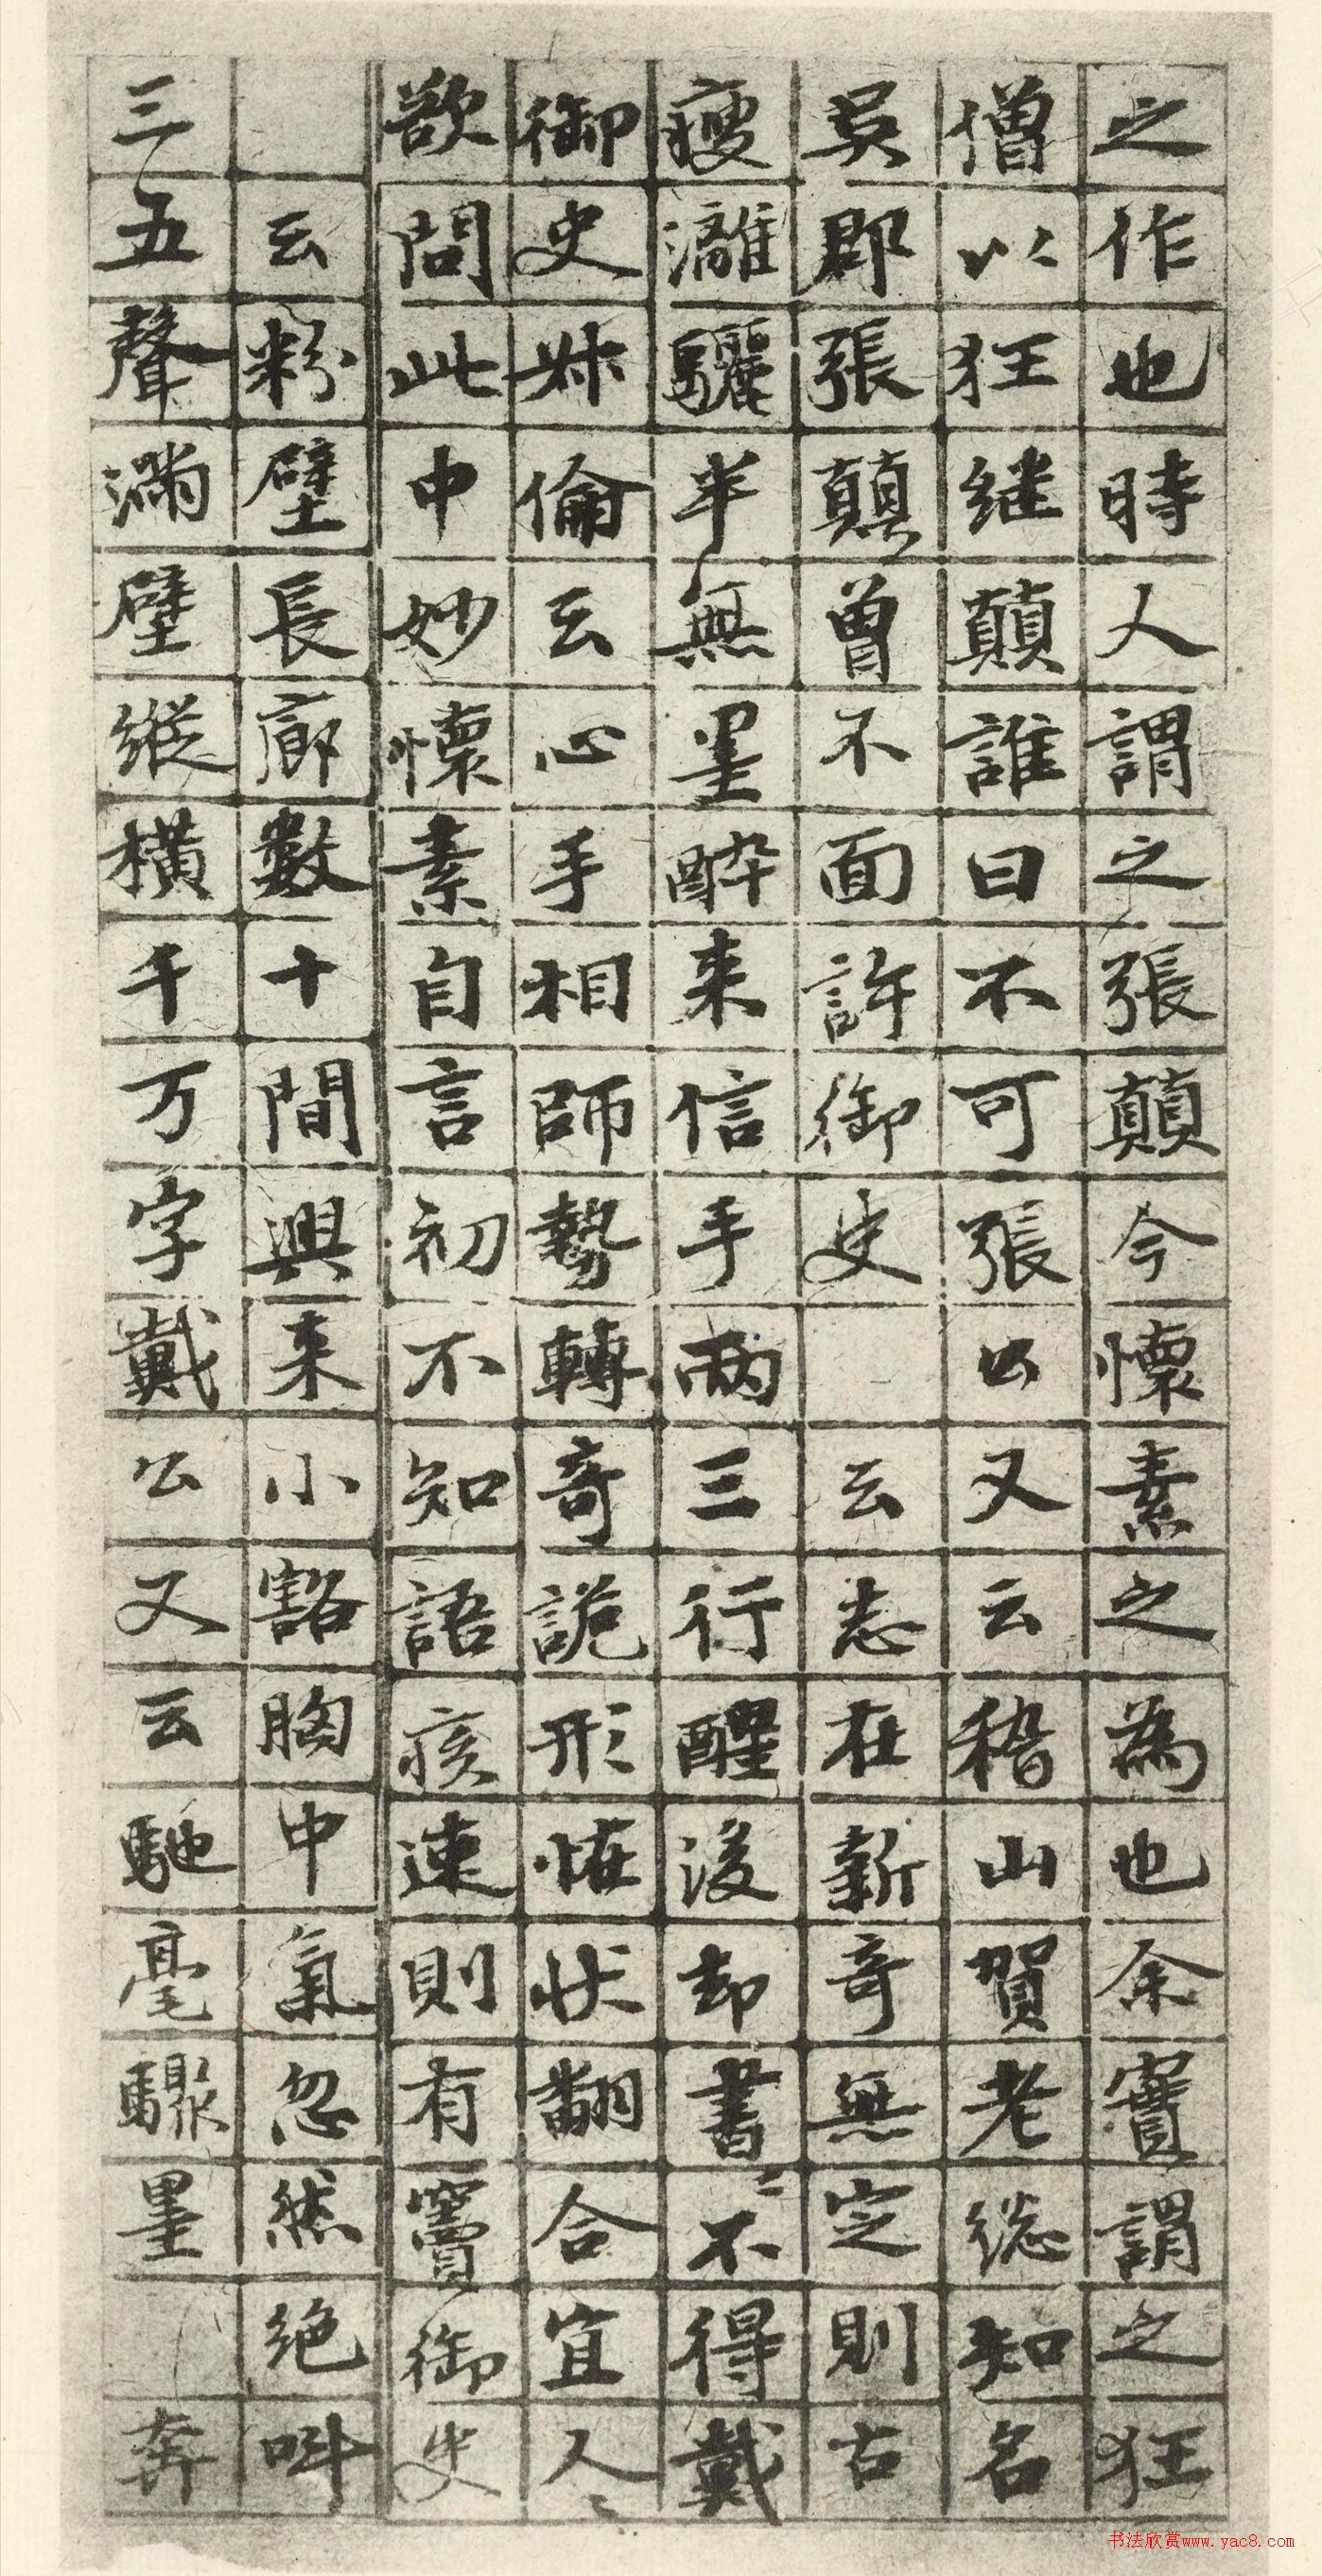 之作也時人謂之張顛今懷素之為也余實謂之狂
僧以狂继顛誰曰不可張公又云稽山賀老総知名
吴郡張顛曾不面許御史云志在新奇無定則古
瘦灕驪半無墨醉来信手两三行醒後却書〻不得戴
御史叔倫云心手相師勢轉奇詭形恠状翻合宜人〻
欲問此中妙懷素自言初不知語疾速則有竇御史
云粉壁長廊數十間興来小豁胸中氣忽然绝叫
三五聲滿壁縱橫千万字戴公又云馳毫驟墨奔
书法欣赏www.yac8.com